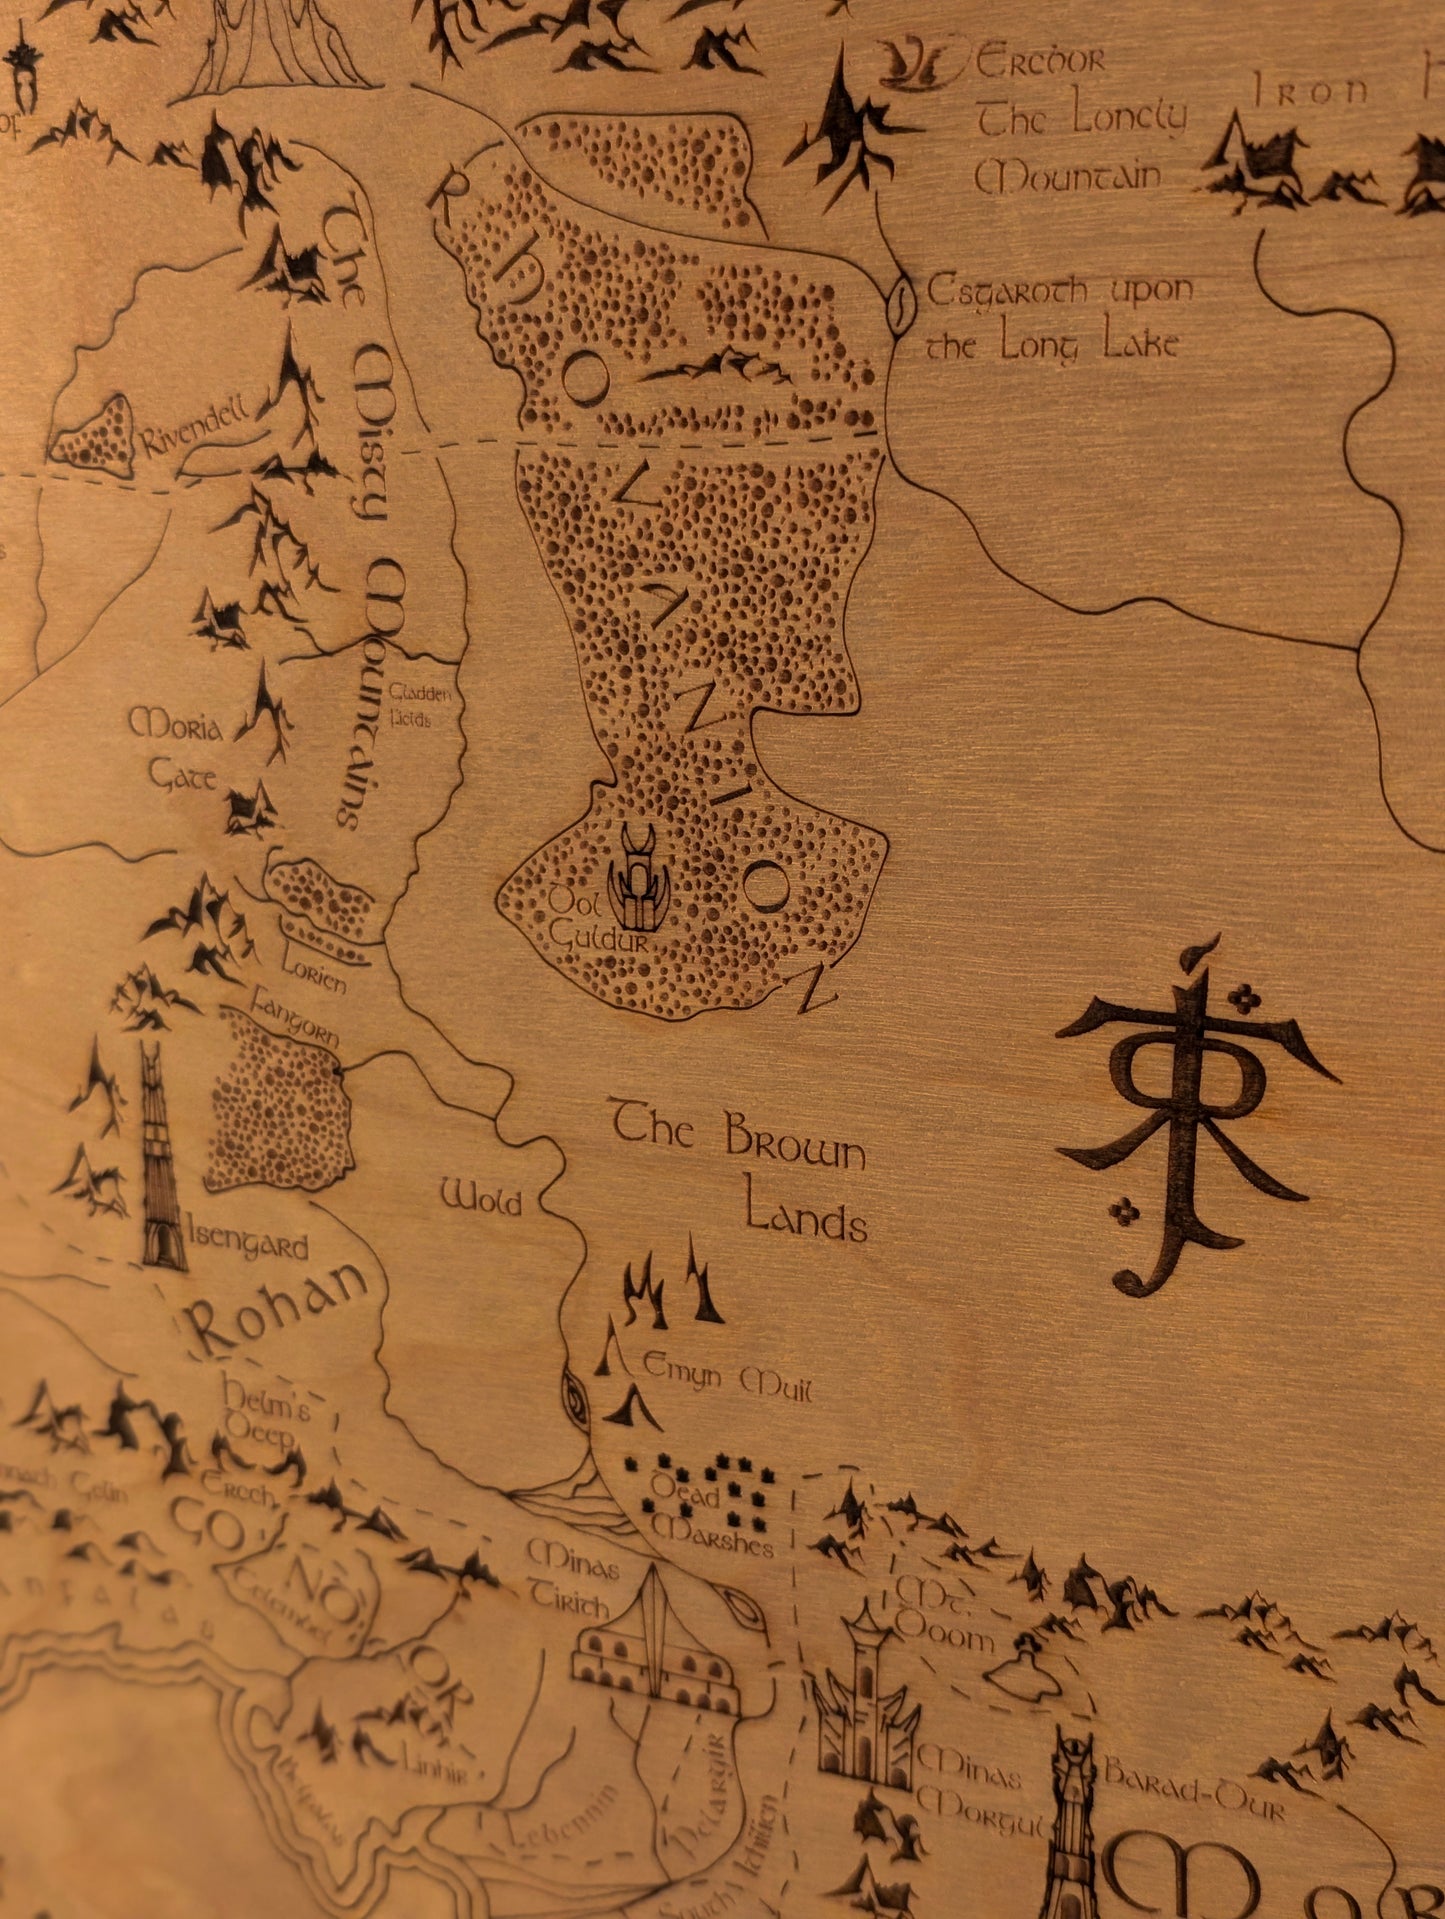 Erebor
The Lonely
Mountain
Iron
of
The Misty Mountains
Rhovanion
Esgaroth upon
the Long Lake
Rivendell
Gladden
Fields
Moria
Gate
Dol
Guldur
Lorien
Fangorn
The Brown
Lands
Wold
Isengard
Rohan
Emyn Muil
Helm's
Deep
Erech
Dead
Marshes
GONDOR
Minas
Tirith
Mt.
Doom
Linhir
Minas
Morgul
Barad-Dur
Lebennin
Pelargir
South Ithilien
Mor